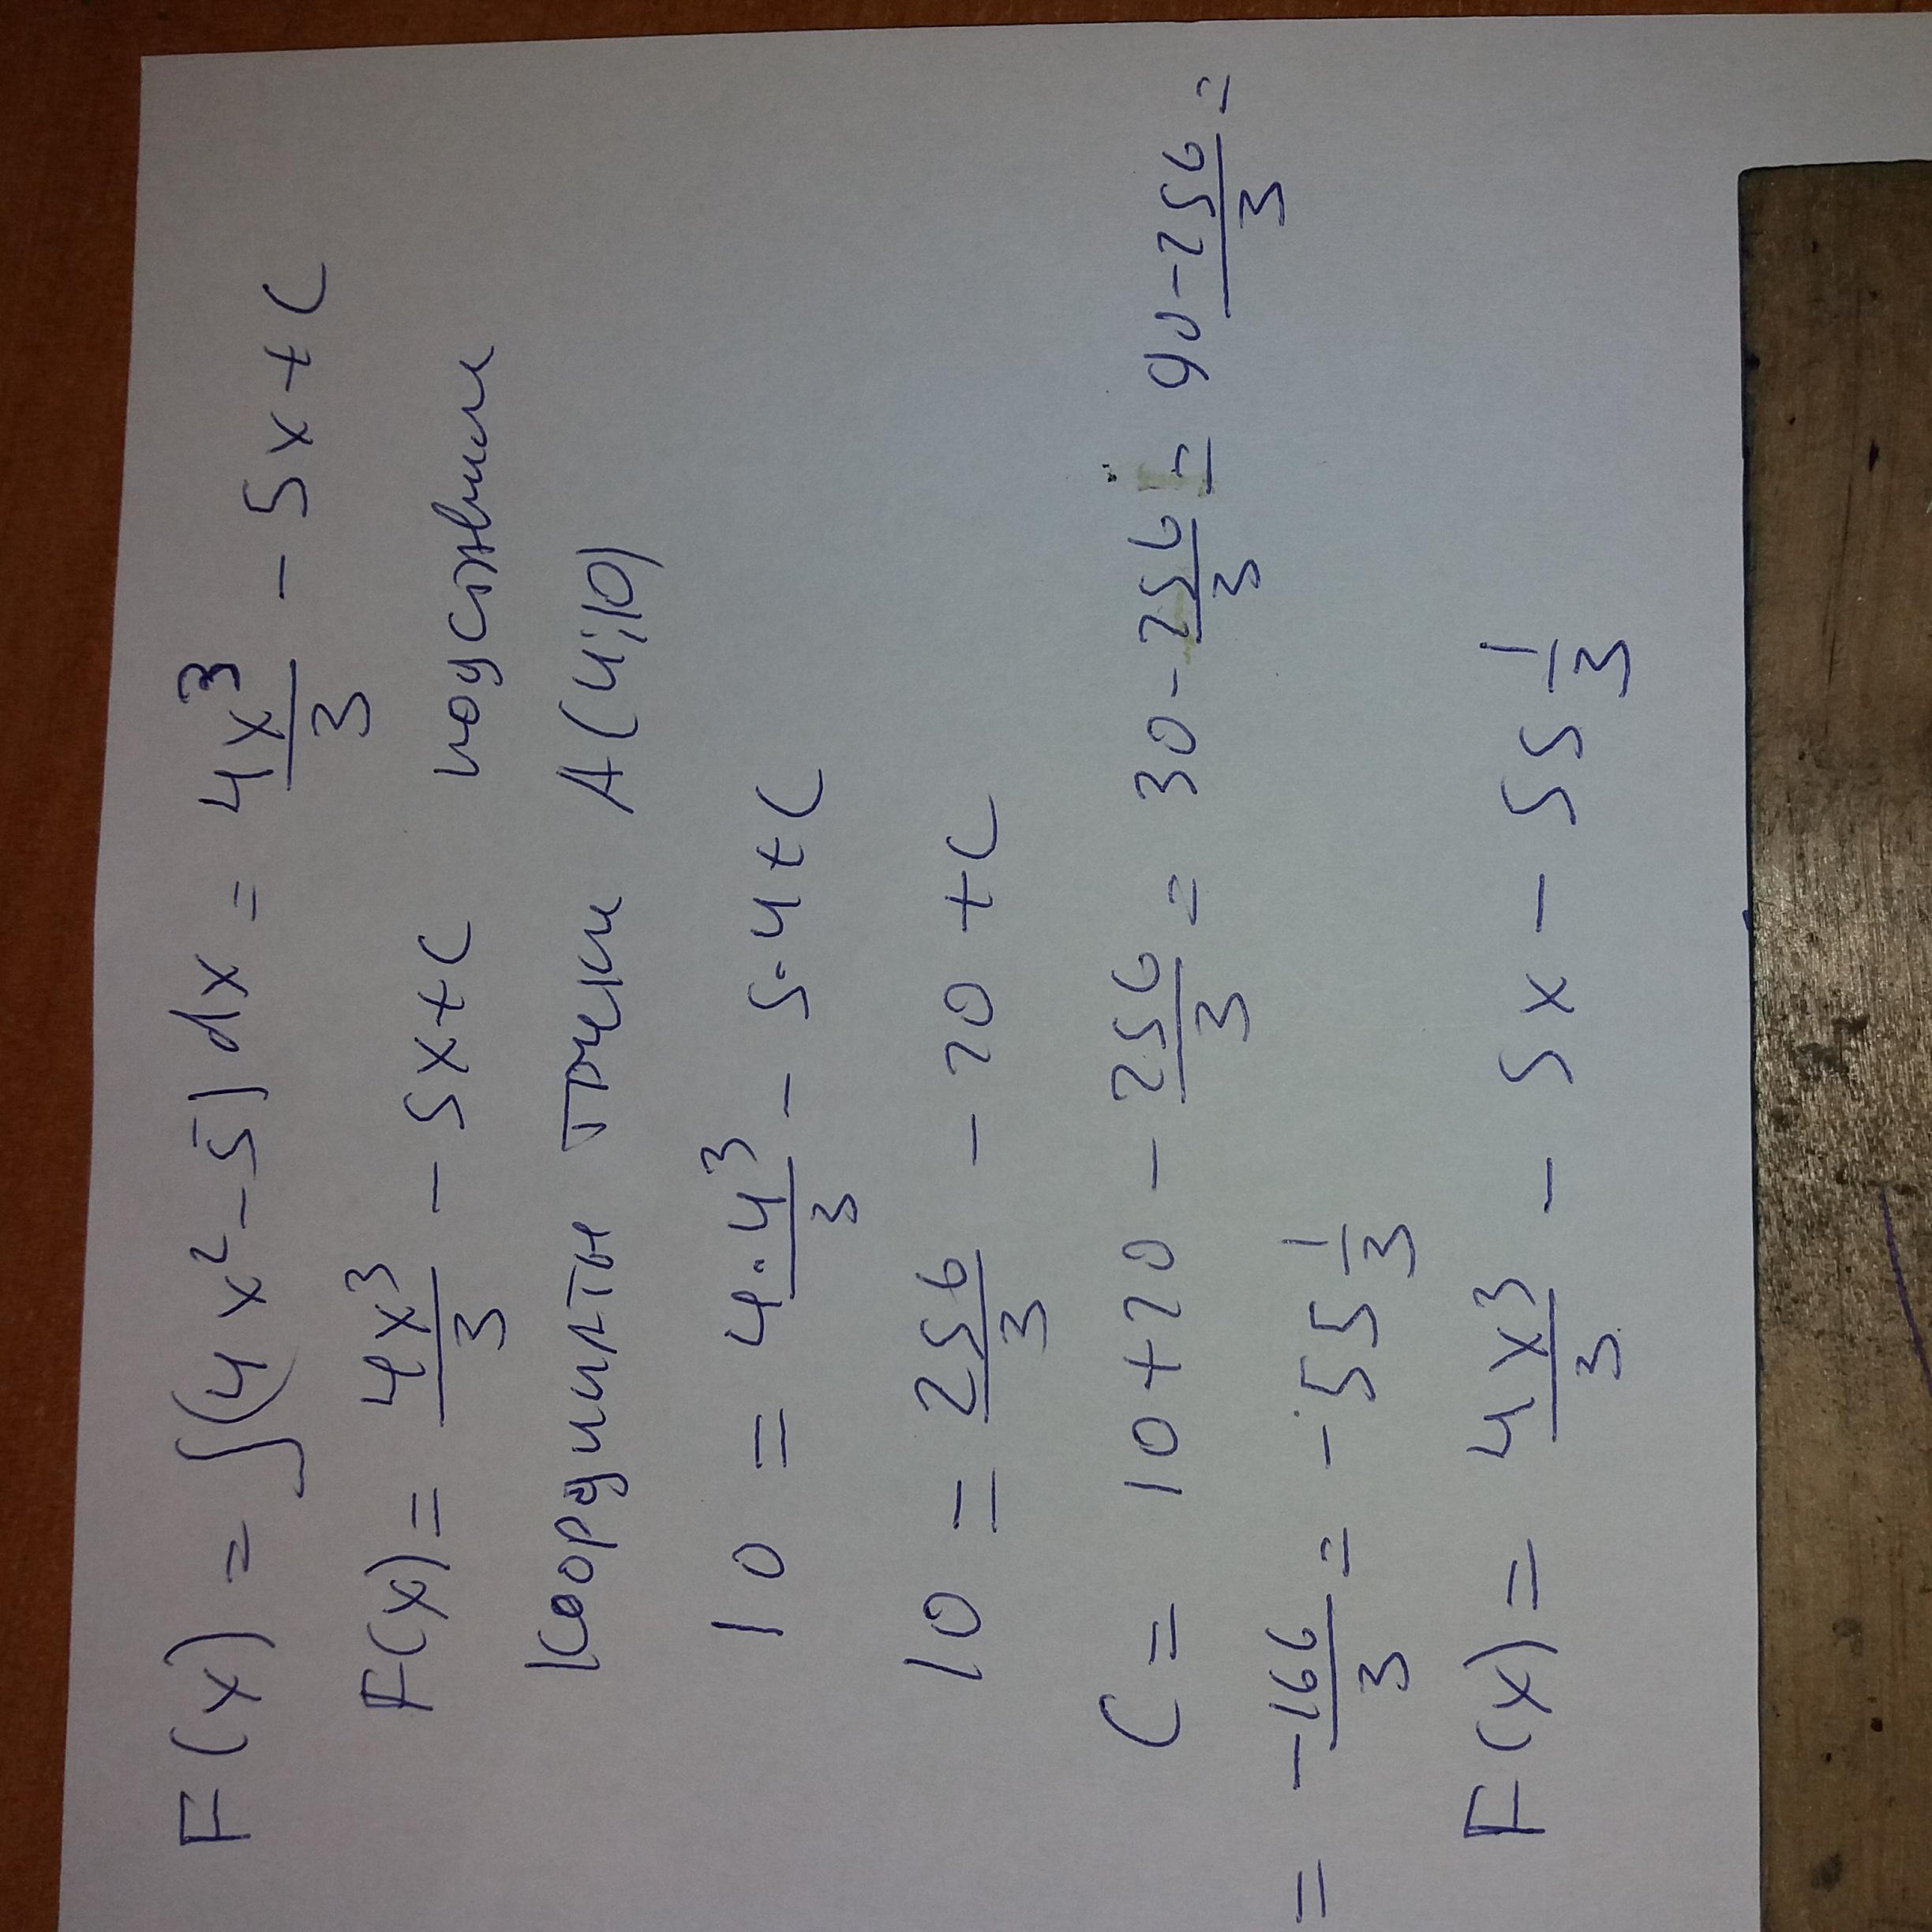 F(x) = ∫(4x² - 5) dx = 4x³/3 - 5x + C
F(x) = 4x³/3 - 5x + C подставим
Координаты точки A(4;10)
10 = 4·4³/3 - 5·4 + C
10 = 256/3 - 20 + C
C = 10 + 20 - 256/3 = 30 - 256/3 = 90-256/3 =
= -166/3 = -55 1/3
F(x) = 4x³/3 - 5x - 55 1/3